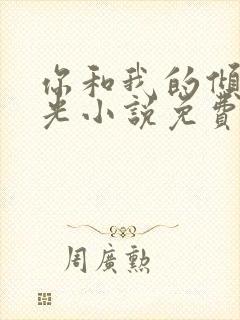 你和我的傾
光小說免費
周廣勲